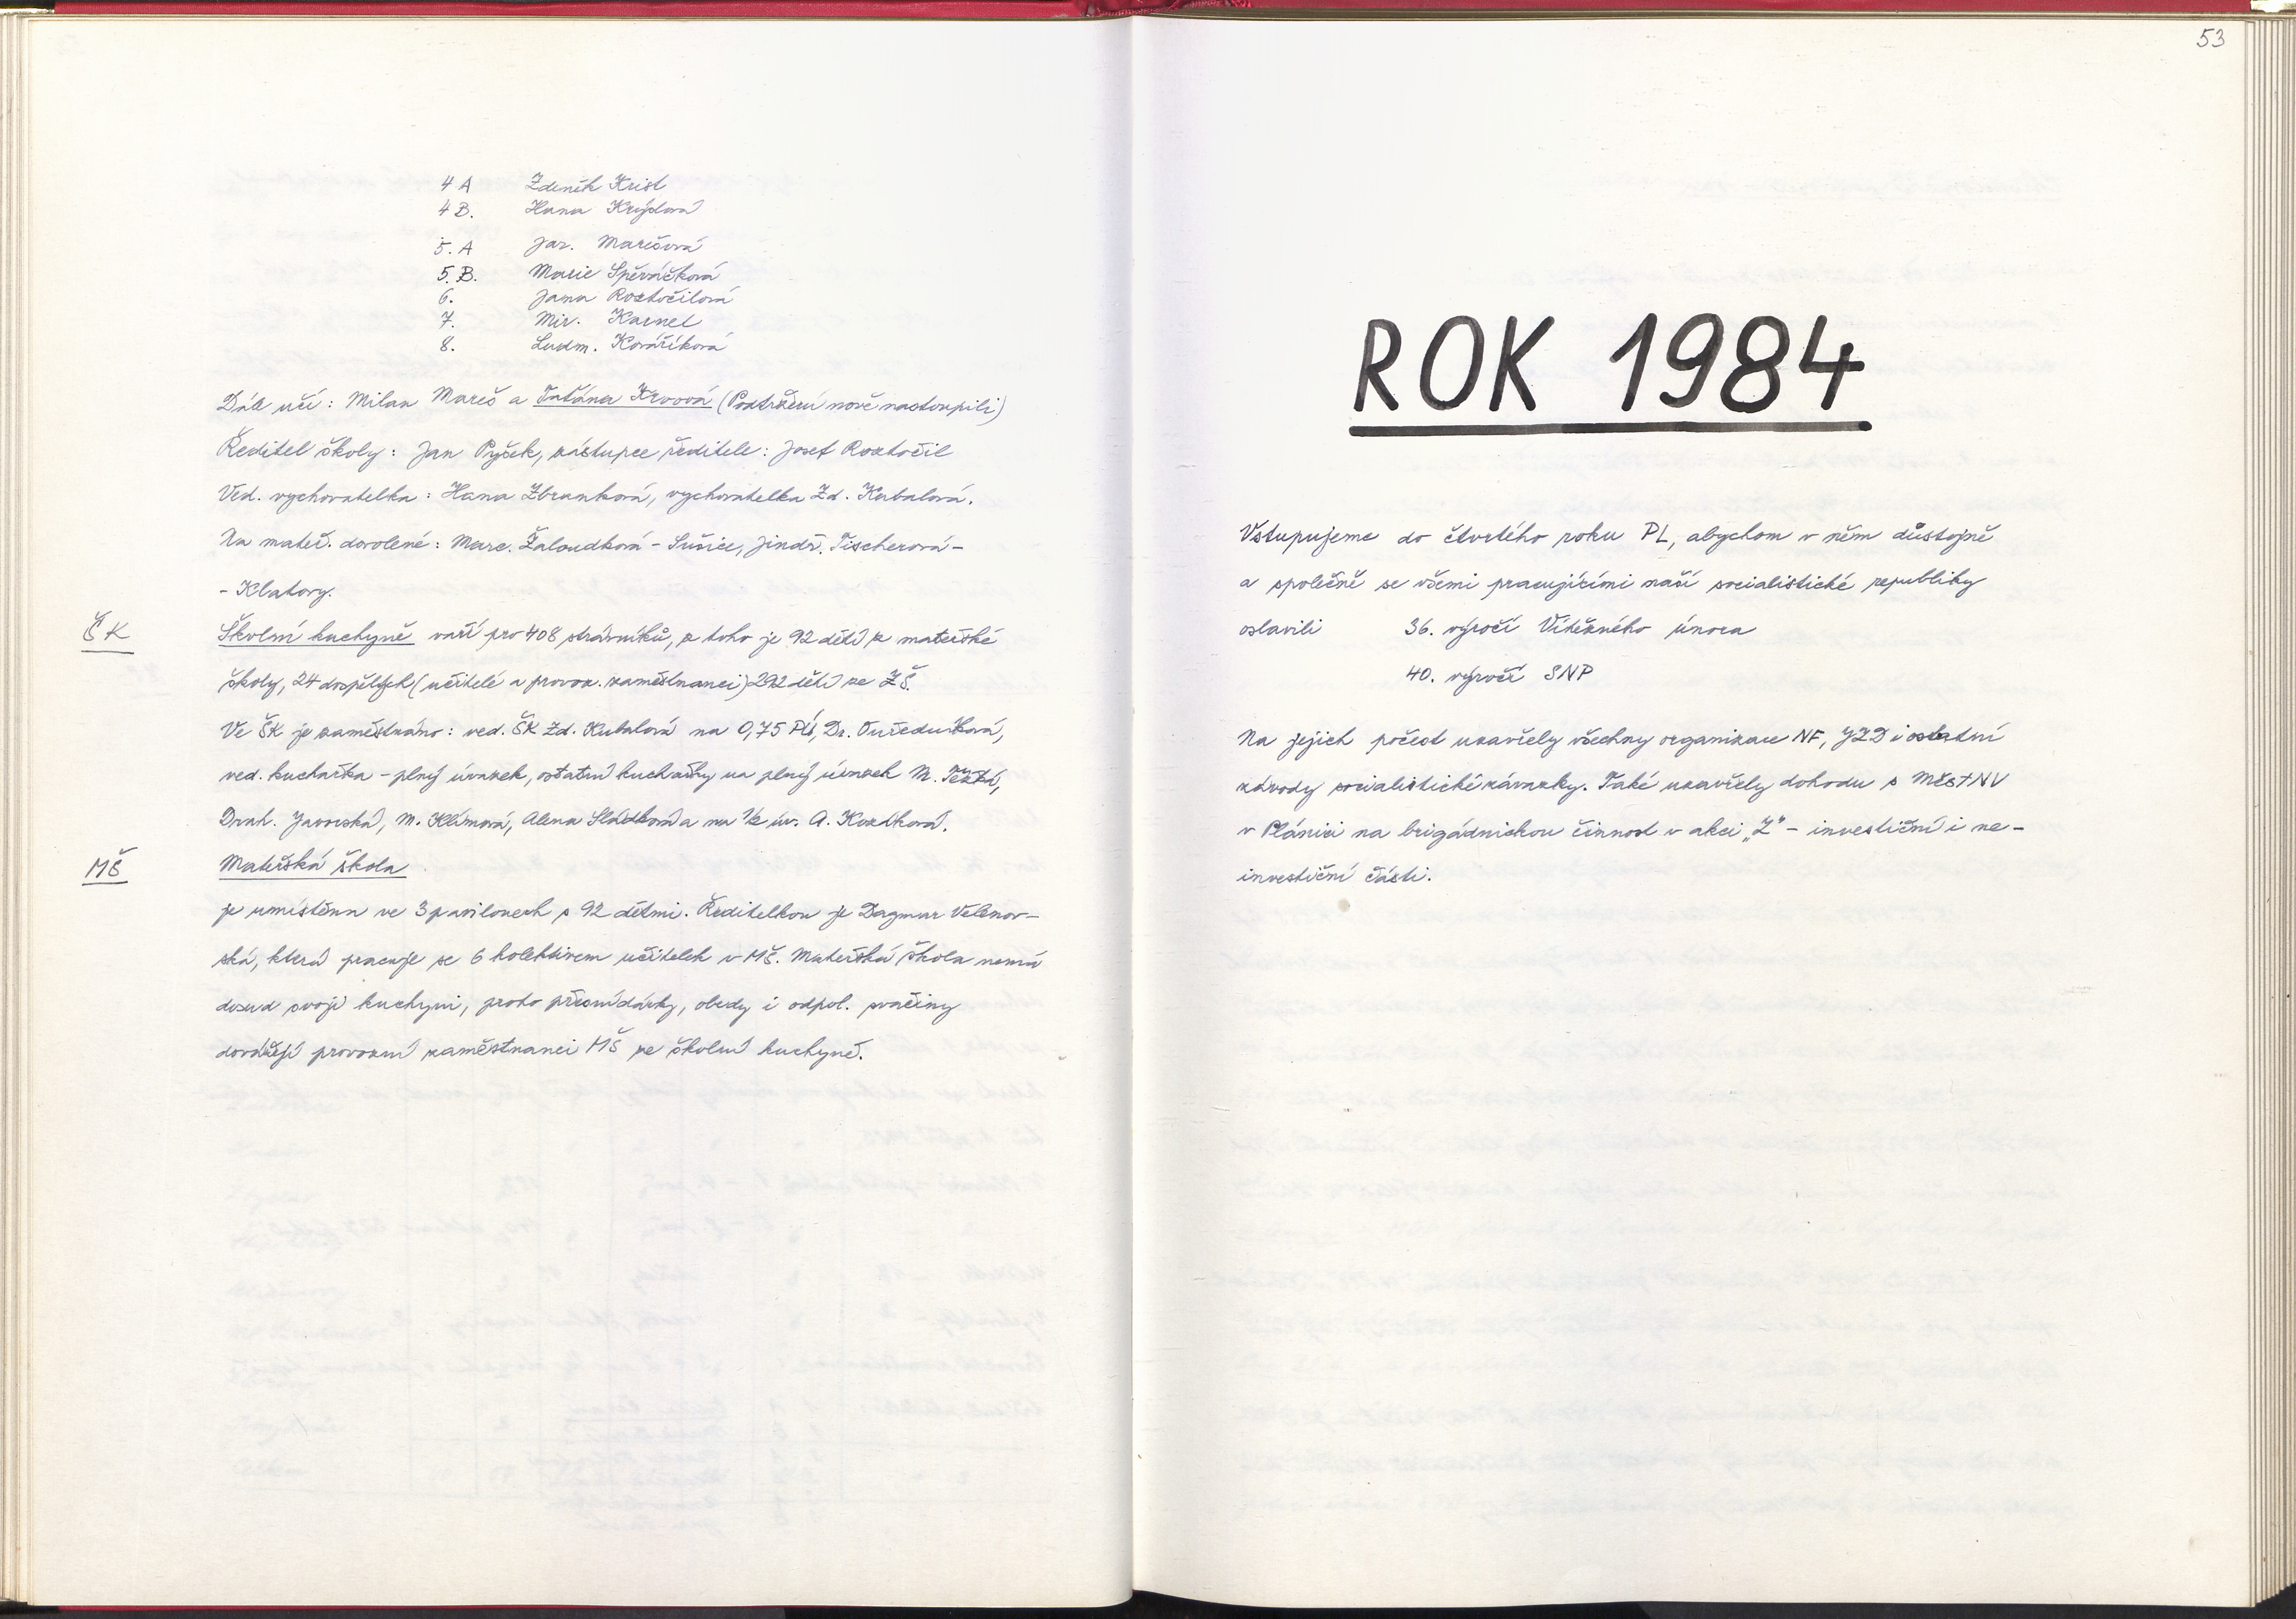 4 A Zdeněk Krist
4 B. Hana Krýdová
5. A Jar. Marešová
5. B. Marie Spěváčková
6. Jana Roztočilová
7. Mir. Karnet
8. Ludm. Kováříková
Dále učí: Milan Mareš a Taťána Krvová (Podtržení nově nastoupili)
Ředitel školy: Jan Pyšek, zástupce ředitele: Josef Roztočil
Ved. vychovatelka: Hana Zbranková, vychovatelka Zd. Kubalová.
Na mateř. dovolené: Marc. Žaloudková - Sušice, Jindř. Tischerová -
- Klatovy.
ŠK
Školní kuchyně vaří pro 408 strávníků, z toho je 92 dětí z mateřské
školy, 24 dospělých (učitelé a provoz. zaměstnanci) 292 dětí ze ZŠ.
Ve ŠK je zaměstnáno: ved. ŠK Zd. Kubalová na 0,75 Dr.
ved. kuchařka - plný úvazek, ostatní kuchařky na plný úvazek M. Težká,
Drah. Javorská, M. Klímová, Alena Sládková a na 1/2 úv. A. Kozlková.
MŠ
Mateřská škola
je umístěna ve 3 pavilonech s 92 dětmi. Ředitelkou je Dagmar Velenov-
ská, která pracuje se 6 kolektivem učitelek v MŠ. Mateřská škola nemá
dosud svoji kuchyni, proto přesnídávky, obedy i odpol. svačiny
dovážejí provozní zaměstnanci MŠ ze školní kuchyně.
53
ROK 1984
Vstupujeme do čtvrtého roku PL, abychom v něm důstojně
a společně se všemi pracujícími naší socialistické republiky
oslavili 36. výročí Vítězného února
40. výročí SNP
Na jejich počest uzavřely všechny organizace NF, JZD i ostatní
závody socialistické závazky. Také uzavřely dohodu s MěstNV
v Plánici na brigádnickou činnost v akci „Z" - investiční i ne-
investiční části.